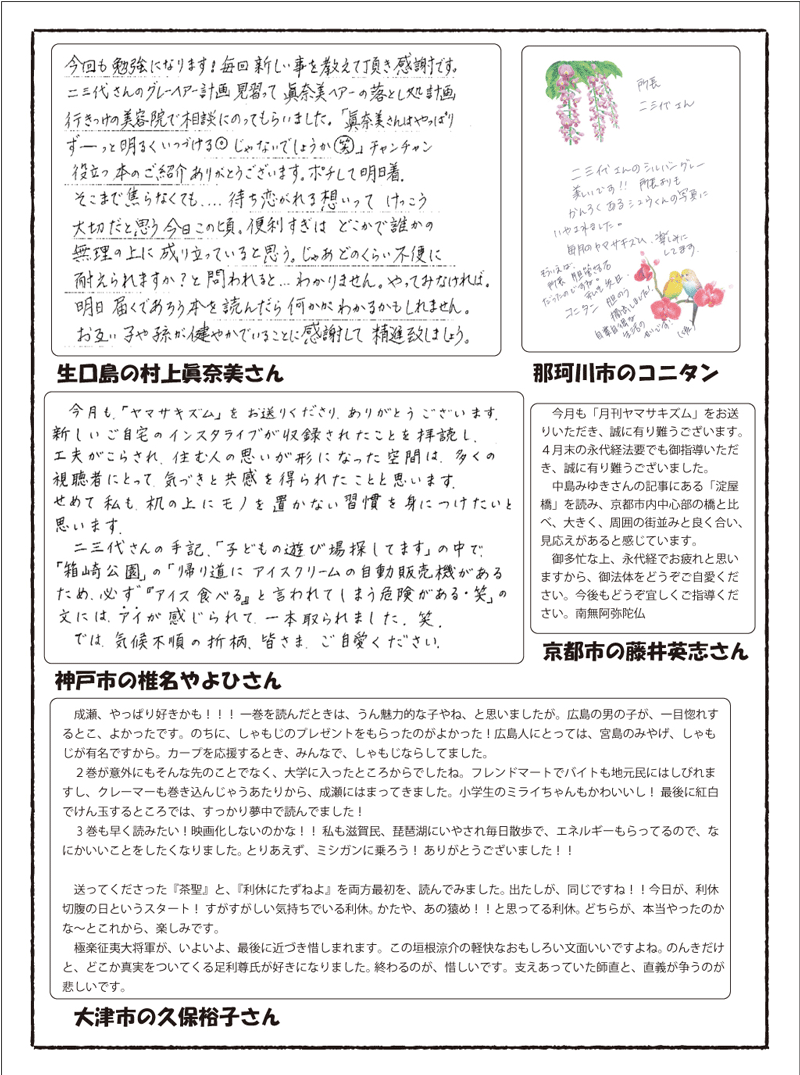 今回も勉強になります!毎回新しい事を教えて頂き感謝です。
二三代さんのグレーヘアー計画見習って眞奈美ヘアーの落とし処計画
行きつけの美容院で相談にのってもらいました。「眞奈美さんはやっぱり
ずーっと明るくいつづける じゃないでしょうか(笑)」チャンチャン
役立つ本のご紹介ありがとうございます。ポチして明日着。
そこまで焦らなくても....待ち恋がれる想いって けっこう
大切だと思う今日この頃。便利すぎは どこかで誰かの
無理の上に成り立っていると思う。じゃあどのくらい不便に
耐えられますか?と問われると...わかりません。やってみなければ。
明日届くであろう本を読んだら何かがわかるかもしれません。
お互い子や孫が健やかでいることに感謝して 精進致しましょう。
生口島の村上眞奈美さん
所長
二三代さん
二三代さんのシルバーグレー
美しいです!!
かんろくあるシュウくんの写真に
いやされました。
毎月のヤマサキズム、楽しみに
してます。
もういえば、
コニタン
那珂川市のコニタン
今月も、「ヤマサキズム」を お送りくださり、ありがとうございます。
新しいご自宅のインスタライブが収録されたことを拝読し、
工夫がこらされ、住む人の思いが形になった空間は、多くの
視聴者にとって、気づきと共感を得られたことと思います。
せめて私も、机の上にモノを置かない習慣を身につけたいと
思います。
二三代さんの手記、「子どもの遊び場探してます」の中で、
「箱崎公園」の「帰り道に アイスクリームの自動販売機がある
ため、必ず『アイス食べる』と言われてしまう危険がある・笑」の
文には、アイが感じられて、一本取られました。笑。
では、気候不順の折柄、皆さま、ご自愛ください。
神戸市の椎名やよひさん
今月も「月刊ヤマサキズム」をお送
りいただき、誠に有り難うございます。
４月末の永代経法要でも御指導いただ
き、誠に有り難うございました。
中島みゆきさんの記事にある「淀屋
橋」を読み、京都市内中心部の橋と比
べ、大きく、周囲の街並みと良く合い、
見応えがあると感じています。
御多忙な上、永代経でお疲れと思い
ますから、御法体をどうぞご自愛くだ
さい。今後もどうぞ宜しくご指導くだ
さい。南無阿弥陀仏
京都市の藤井英志さん
成瀬、やっぱり好きかも！！！ 一巻を読んだときは、うん魅力的な子やね、と思いましたが。広島の男の子が、一目惚れす
るとこ、よかったです。のちに、しゃもじのプレゼントをもらったのがよかった！広島人にとっては、宮島のみやげ、しゃも
じが有名ですから。カープを応援するとき、みんなで、しゃもじならしてました。
２巻が意外にもそんな先のことでなく、大学に入ったところからでしたね。フレンドマートでバイトも地元民にはしびれま
すし、クレーマーも巻き込んじゃうあたりから、成瀬にはまってきました。小学生のミライちゃんもかわいいし！ 最後に紅白
でけん玉するところでは、すっかり夢中で読んでました！
３巻も早く読みたい！映画化しないのかな！！ 私も滋賀民、琵琶湖にいやされ毎日散歩で、エネルギーもらってるので、な
にかいいことをしたくなりました。とりあえず、ミシガンに乗ろう！ ありがとうございました！！
送ってくださった『茶聖』と、『利休にたずねよ』を両方最初を、読んでみました。出だしが、同じですね！！今日が、利休
切腹の日というスタート！ すがすがしい気持ちでいる利休。かたや、あの猿め！！と思ってる利休。どちらが、本当やったのか
な〜とこれから、楽しみです。
極楽征夷大将軍が、いよいよ、最後に近づき惜しまれます。この垣根涼介の軽快なおもしろい文面いいですよね。のんきだけ
と、どこか真実をついてくる足利尊氏が好きになりました。終わるのが、惜しいです。支えあっていた師直と、直義が争うのが
悲しいです。
大津市の久保裕子さん